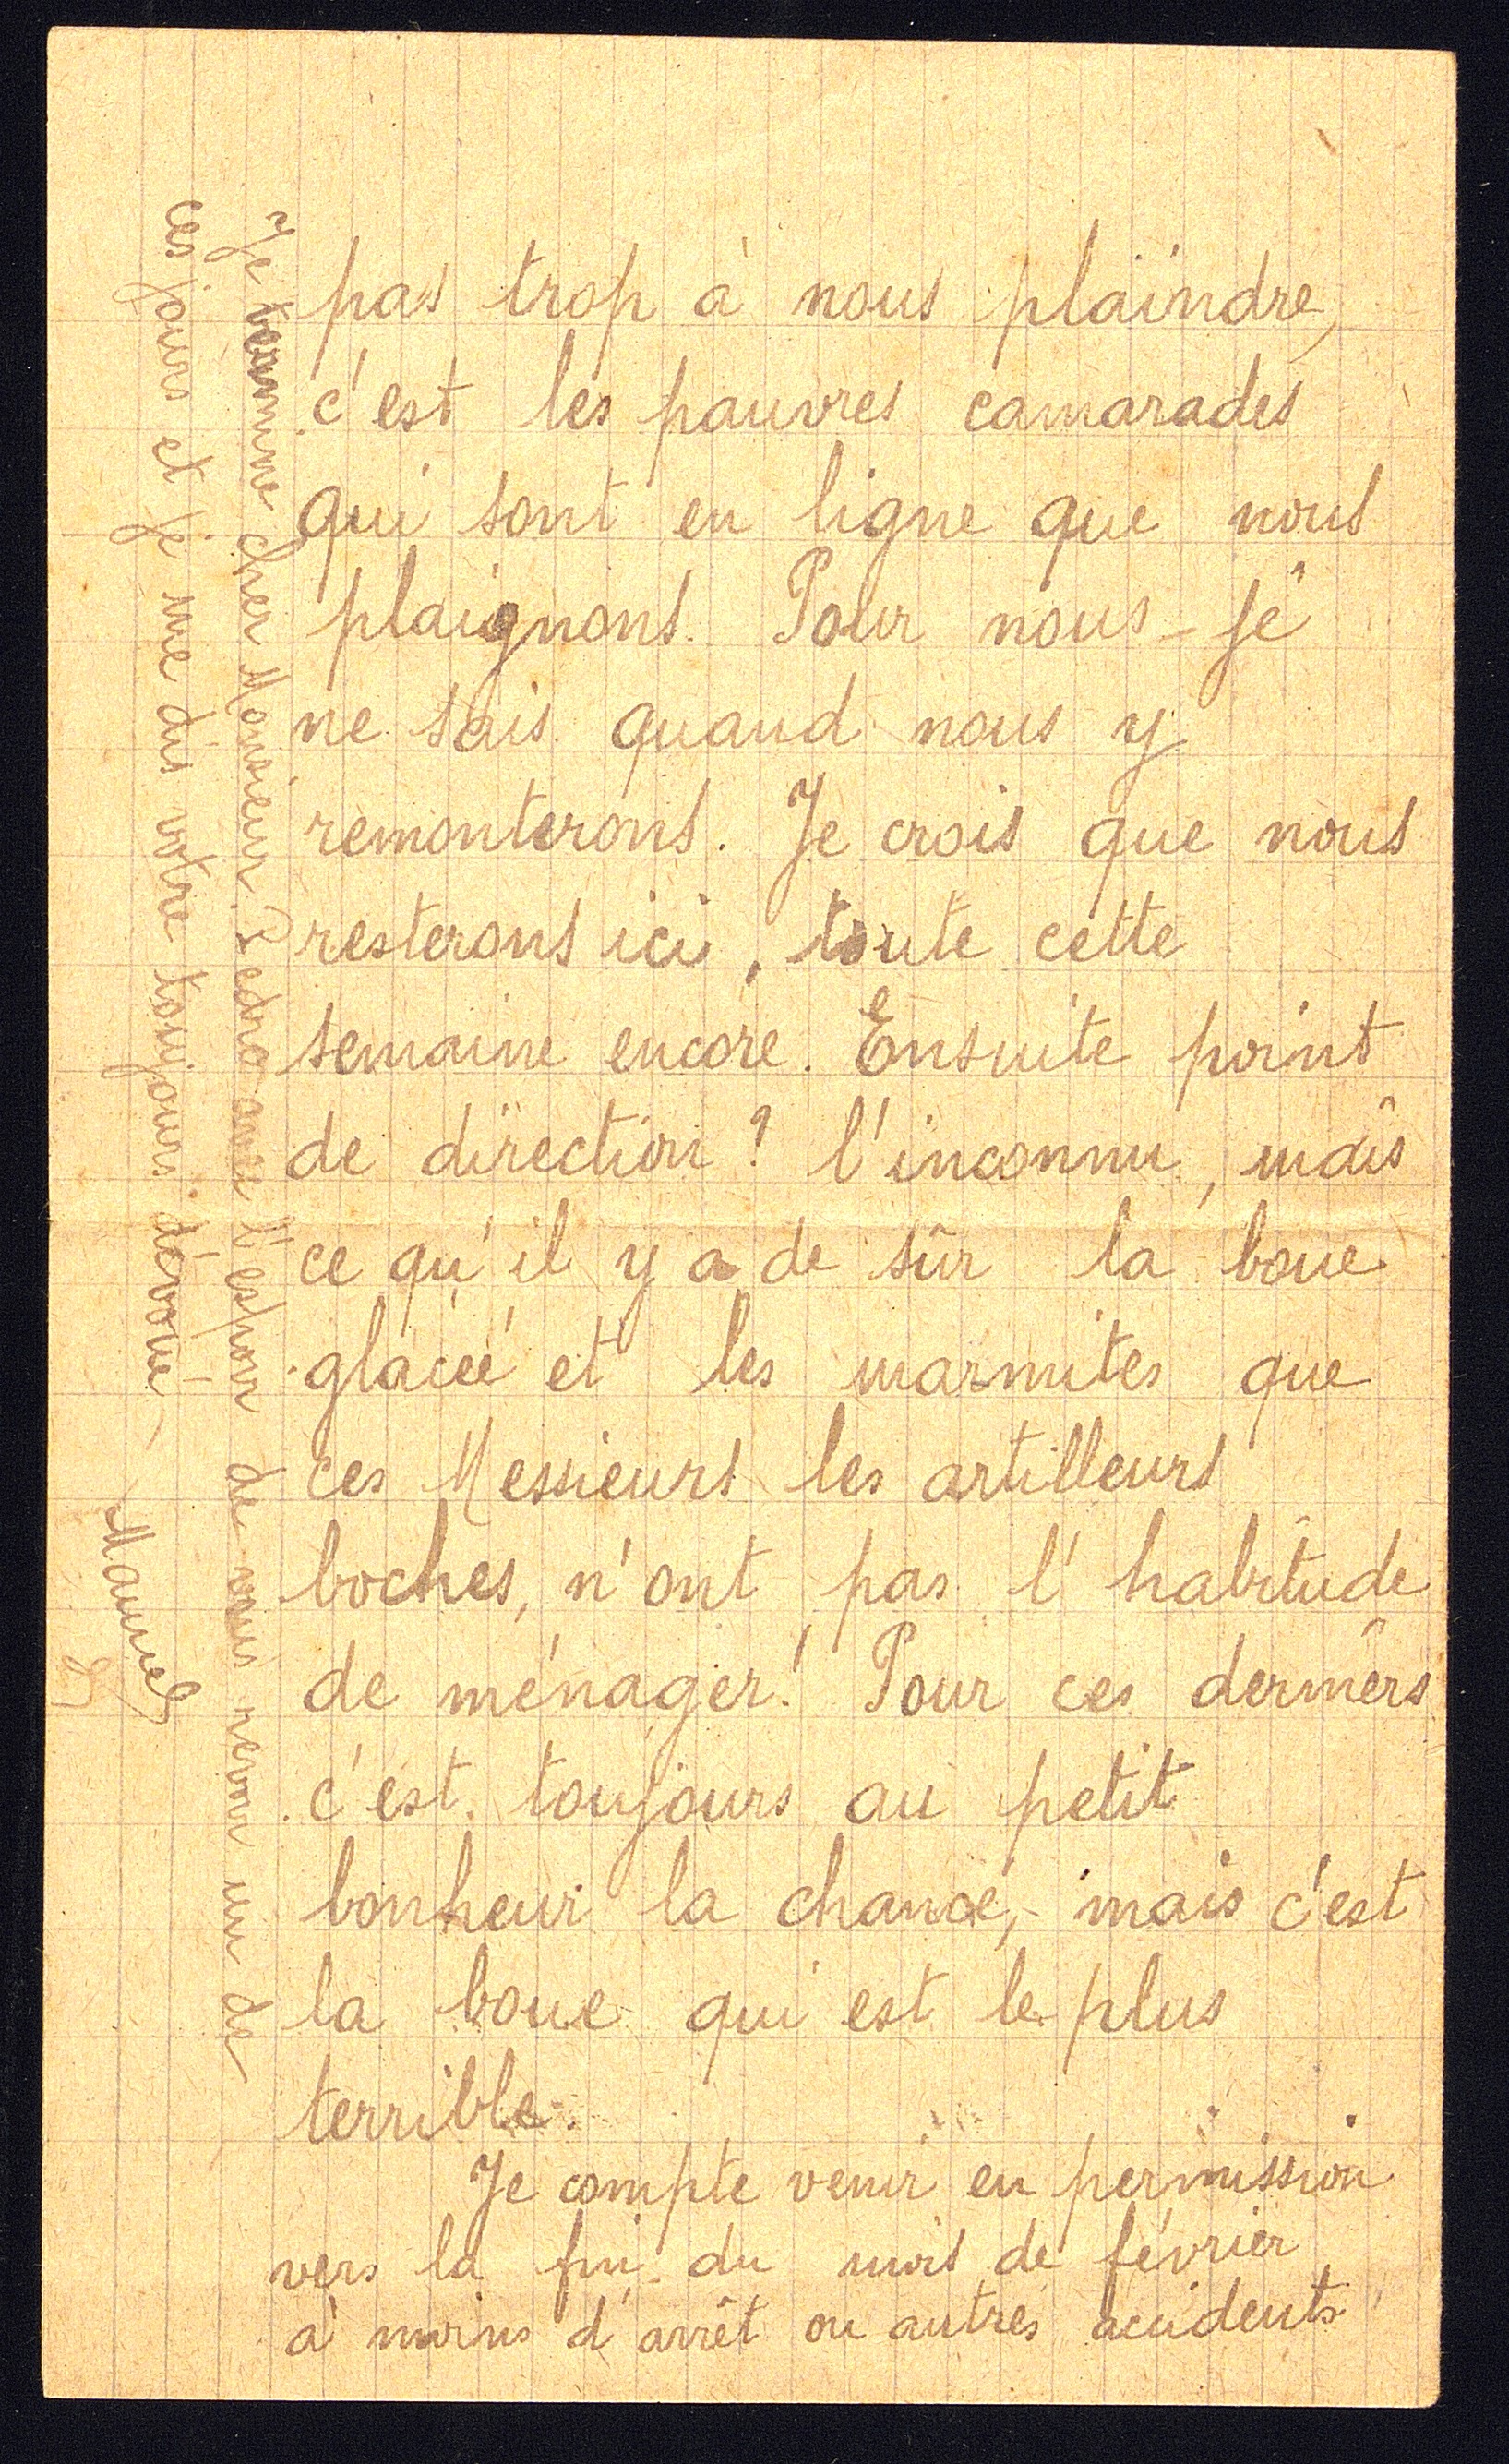 pas trop à nous plaindre,
c'est les pauvres camarades
qui sont en ligne que nous
plaignons. Pour nous - je
ne sais quand nous y
remonterons. Je crois que nous
resterons ici, toute cette
semaine encore. Ensuite point
de direction ? l'inconnu, mais
ce qu'il y a de sûr la boue
glacée et les marmites que
ces Messieurs les artilleurs
boches, n'ont pas l'habitude
de ménager ! Pour ces derniers
c'est toujours au petit
bonheur la chance, - mais c'est
la boue qui est le plus
terrible.
Je compte venir en permission
vers la fin du mois de février
à moins d'arrêt ou autres accidents
Je termine cher Monsieur avec l'espoir de vous revoir un de
ces jours et je me dis votre toujours dévoué